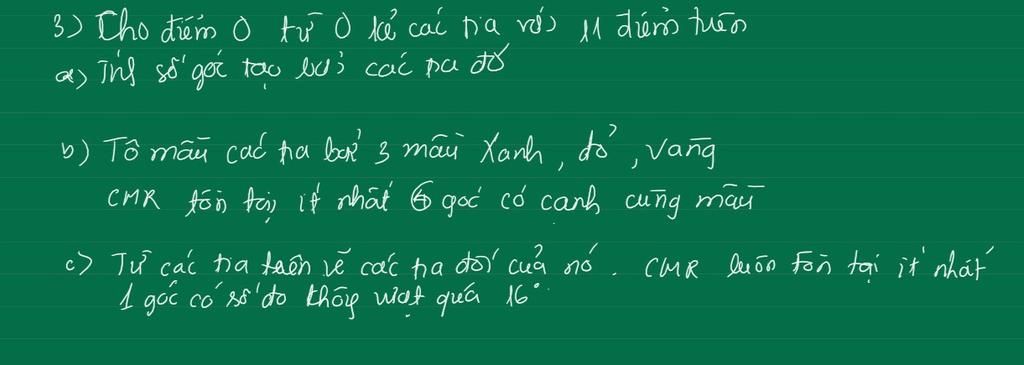 3) Cho điểm O từ O kẻ các tia với 11 điểm trên
a) Tính số góc tạo bởi các tia đó
b) Tô màu các tia bởi 3 màu Xanh, đỏ, vàng
CMR tồn tại ít nhất 6 góc có cạnh cùng màu
c) Từ các tia trên vẽ các tia đối của nó. CMR luôn tồn tại ít nhất
1 góc có số đo không vượt quá 16°.